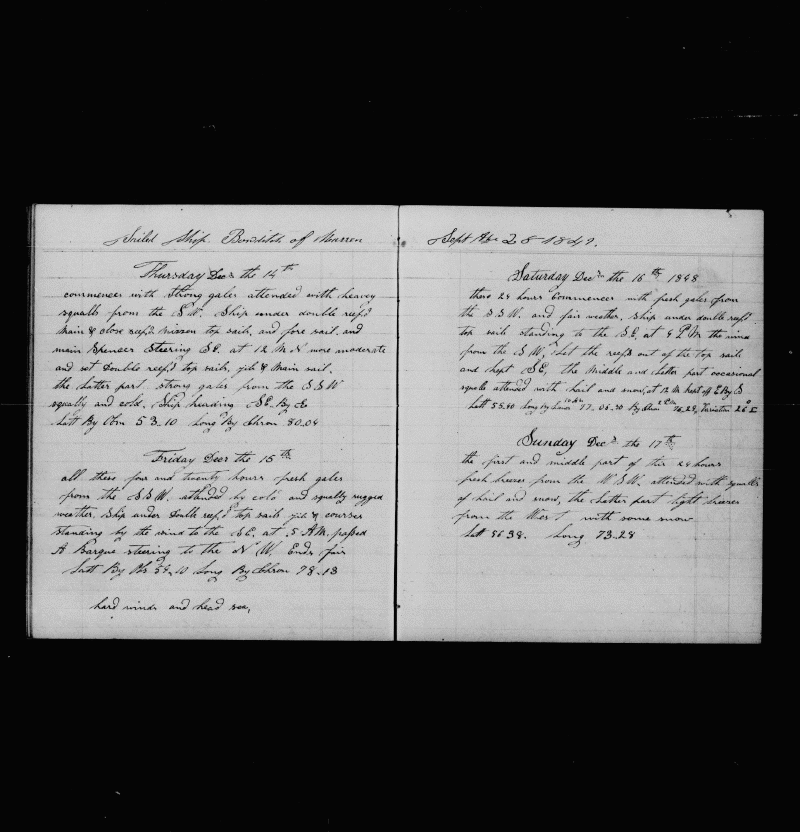 Sailed Ship Bowditch of Warren
Thursday Decr the 14th
commences with strong gales attended with heavey
squalls from the S W. Ship under double reefd
main & close reefd mizzen top sail, and fore sail, and
main spencer steering S E. at 12 M N more moderate
and set double reefd top sails, jib & main sail.
the latter part strong gales from the S S W
squally and cold. Ship heading S E. By E
Latt By Obn 53-10 Long By Chron 80.04
Friday Decr the 15th
all these four and twenty hours fresh gales
from the S S W. attended by cold and squally rugged
weather, Ship under double reefd top sails jib & courses
standing by the wind to the S E. at 5 A M. passed
A Barque steering to the N W. Ends fair
Latt By Obs 54-10 Long By Chron 78-13
hard winds and head sea,
Sept 28 1849.
Saturday Decm the 16th 1848
these 24 hours Commences with fresh gales from
the S S W. and fair weather, Ship under double reefd
top sails standing to the S E, at 4 P M the wind
from the S W, Let the reefs out of the top sails
and kept S E, the Middle and latter part occasional
squalls attended with hail and snow, at 12 M kept off E By S
Latt 55.40 Long By Lunar 77.05.30 By Chron 76.28, Variation 26° E
Sunday Decr the 17th
the first and middle part of this 24 hours
fresh breezes from the W S W. attended with squalls
of hail and snow, the latter part light breezes
from the West with some snow
Latt 56 38. Long 73-28